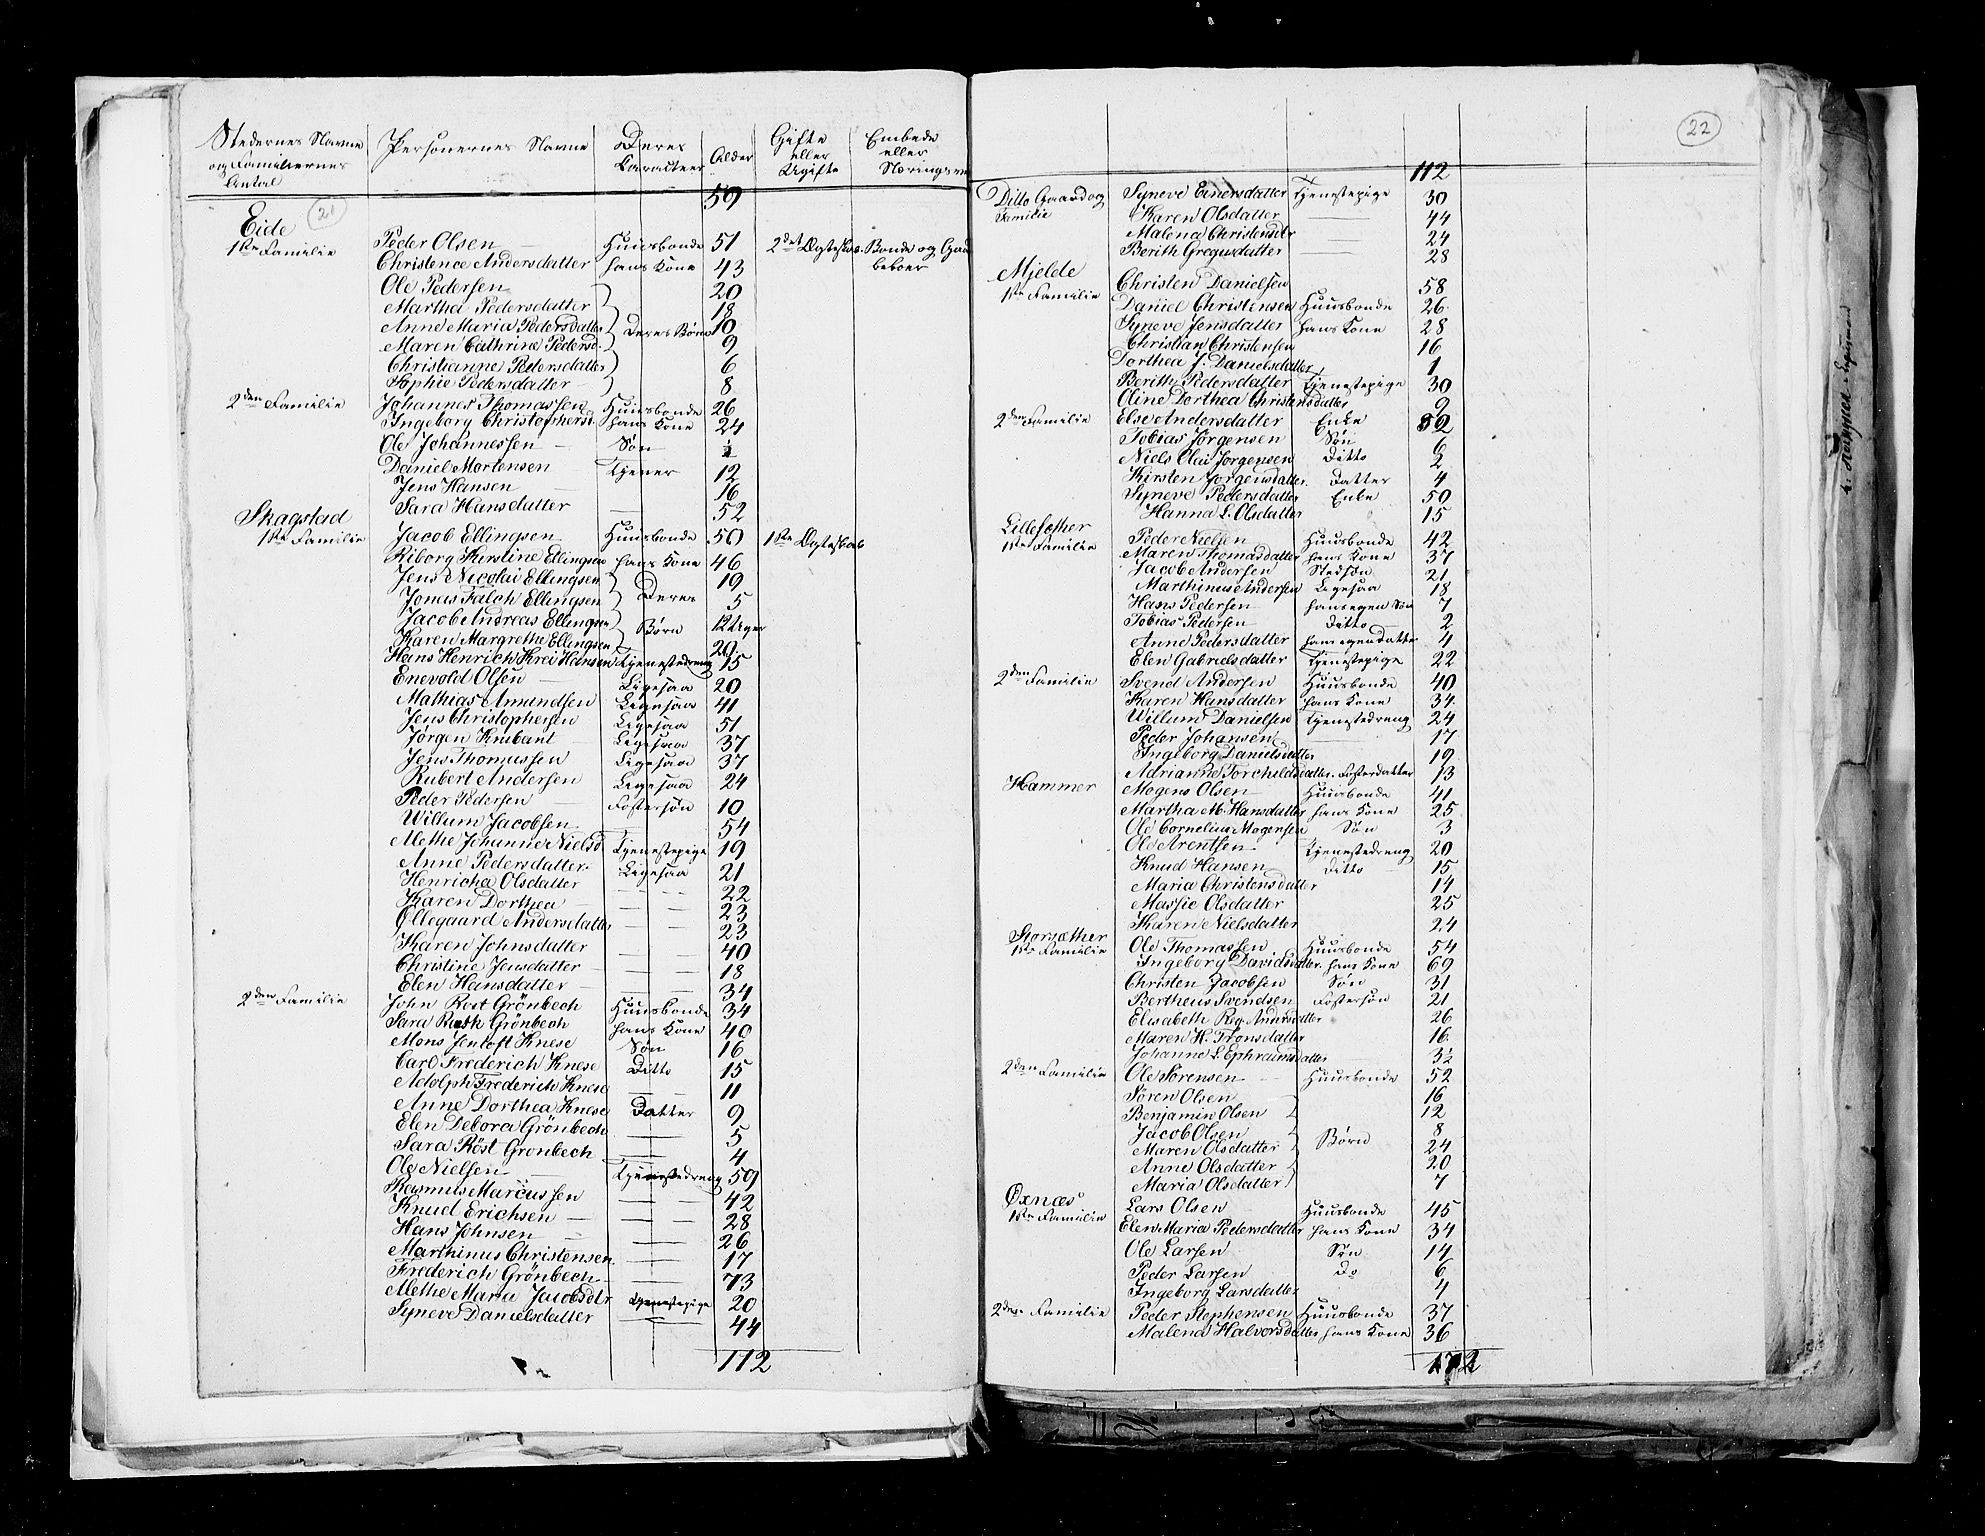 Stedernes Navne og Familiernes Antal | Personernes Navne | Deres Caracteer | Alder | Gifte eller Ugifte | Embede eller Næringsve
59
21
Eide
1ste Familie Peder Olsen Huusbonde 51 2det Ægteskab. Bonde og Gaard
Christence Andersdatter hans Kone 43 beboer
Ole Pedersen 20
Martha Pedersdatter 18
Anne Maria Pedersdatter Deres Børn 10
Maren Cathrine Pedersd. 9
Christianne Pedersdatter 6
Sophie Pedersdatter 8
2den Familie Johannes Thomassen Huusbonde 26
Ingeborg Christophersd. hans Kone 24
Ole Johannessen Søn
Daniel Mortensen Tjener 12
Jens Hansen 16
Sara Hansdatter 52
Skagstad
1ste Familie Jacob Ellingsen Huusbonde 50 1ste Ægteskab
Riborg Kirstine Ellingsen hans Kone 46
Jens Nicolai Ellingsen 19
Jonas Falch Ellingsen Deres 5
Jacob Andreas Ellingsen Børn 12 Uger
Karen Margrethe Ellingsen 20
Hans Henrich Krei Hansen Tjenestedreng 15
Enevold Olsen Ligesaa 20
Mathias Amundsen Ligesaa 41
Jens Christophersen Ligesaa 51
Jørgen Krubant Ligesaa 37
Jens Thomassen Ligesaa 37
Rubert Andersen Ligesaa 24
Peder Pedersen Fostersøn 10
Willum Jacobsen 54
Methe Johanne Nielsd. Tjenestepige 19
Anne Pedersdatter Ligesaa 21
Henricha Olsdatter 22
Karen Dorthea 23
Ollegaard Andersdatter 23
Karen Johnsdatter 40
Christine Jensdatter 18
Elen Hansdatter 34
2den Familie John Rost Grönbech Huusbonde 34
Sara Grönbech hans Kone 40
Mons Jentoft Knese Søn 16
Carl Frederich Knese Ditto 15
Adolph Frederich Knese 11
Anne Dorthea Knese Datter 9
Elen Debora Grönbech 5
Sara Röst Gronbech 4
Ole Nielsen Tjenestedreng 59
Rasmus Marcussen 42
Knud Erichsen 28
Hans Johnsen 26
Marthinus Christensen 17
Frederich Grönbech 73
Methe Maria Jacobsdtr Tjenestepige 20
Syneve Danielsdatter 44
112
22
112
Ditto Gaard og Familie Syneve Einersdatter Tjenestepige 30
Karen Olsdatter 44
Malena Christensdtr 24
Berith Gregusdatter 28
Mjelde
1ste Familie Christen Danielsen 58
Daniel Christensen Huusbonde 26
Syneve Jensdatter hans Kone 28
Christian Christensen 16
Dorthea J. Danielsdatter 1
Berith Pedersdatter Tjenestepige 30
Oline Dorthea Christensdatter 9
2den Familie Else Andersdatter Enke 32
Tobias Jørgensen Søn 6
Niels Olai Jørgensen Ditto 2
Kirsten Jørgensdatter. Datter 4
Syneve Pedersdatter Enke 59
Hanna L. Olsdatter 15
Lillesæther
1ste Familie Peder Nielsen Huusbonde 42
Maren Thomasdatter hans Kone 37
Jacob Andersen Stedsøn 21
Marthinus Andersen Ligesaa 18
Hans Pedersen hans egen Søn 7
Tobias Pedersen Ditto 2
Anne Pedersdatter hans egen datter 4
Elen Gabrielsdatter Tjenestepige 22
2den Familie Svend Andersen Huusbonde 40
Karen Hansdatter hans Kone 34
Willum Danielsen Tjenestedreng 24
Peder Johansen 17
Ingeborg Danielsdatter 19
Adrianne Torchildsdatter. Fosterdatter 13
Hammer Mogens Olsen Huusbonde 41
Martha M. Hansdatter hans Kone 25
Ole Cornelius Mogensen Søn 3
Ole Arentsen Tjenestedreng 20
Knud Hansen Ditto 15
Maria Christensdatter 14
Massie Olsdatter 25
Karen Nielsdatter 24
Storsæther
1ste Familie Ole Thomassen Huusbonde 54
Ingeborg Davidsdatter. hans Kone 69
Christen Jacobsen Søn 31
Bertheus Svendsen Fostersøn 21
Elisabeth Reg. Andersdatter 26
Maren H. Tronsdatter 16
Johanne L. Ephraimsdatter 3½
2den Familie Ole Sørensen Huusbonde 52
Sören Olsen 16
Benjamin Olsen 12
Jacob Olsen 8
Maren Olsdatter Børn 24
Anne Olsdatter 20
Maria Olsdatter 7
Øxnæs
1ste Familie Lars Olsen Huusbonde 45
Elen Maria Pedersdatter hans Kone 34
Ole Larsen Søn 14
Peder Larsen Do 6
Ingeborg Larsdatter 4
2den Familie Peder Stephensen Huusbonde 37
Malena Halvorsdatter hans Kone 36
172